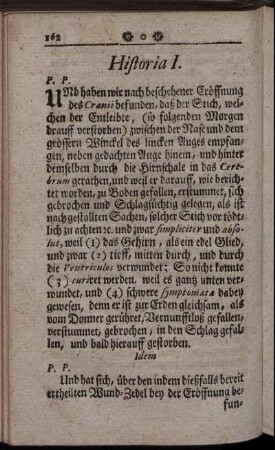 162
Historia I.
P. P.
UNd haben wir nach beschehener Eröffnung
des Cranii befunden, daß der Stich, wel-
chen der Entleibte, (so folgenden Morgen
drauff verstorben) zwischen der Nase und dem
grössern Winckel des lincken Auges empfan-
gen, neben gedachten Auge hinein, und hinter
demselben durch die Hirnschale in das Cere-
brum gerathen, und weil er darauff, wie berich-
tet worden, zu Boden gefallen, erstummet, sich
gebrochen und Schlagsüchtig gelegen, als ist
nach gestallten Sachen, solcher Stich vor tödt-
lich zu achten ꝛc. und zwar simpliciter und abso-
lut, weil (1) das Gehirn, als ein edel Glied,
und zwar (2) tieff, mitten durch, und durch
die Ventriculos verwundet; So nicht konte
(3) curiret werden, weil es gantz unten ver-
wundet, und (4) schwere symptomata dabey
gewesen, denn er ist zur Erden gleichsam, als
vom Donner gerühret, Vernunfftloß gefallen,
verstummet, gebrochen, in den Schlag gefal-
len, und bald hierauff gestorben.
Idem
P. P.
Und hat sich, über den indem dießfalls bereit
ertheilten Wund-Zedel bey der Eröffnung be-
fun-